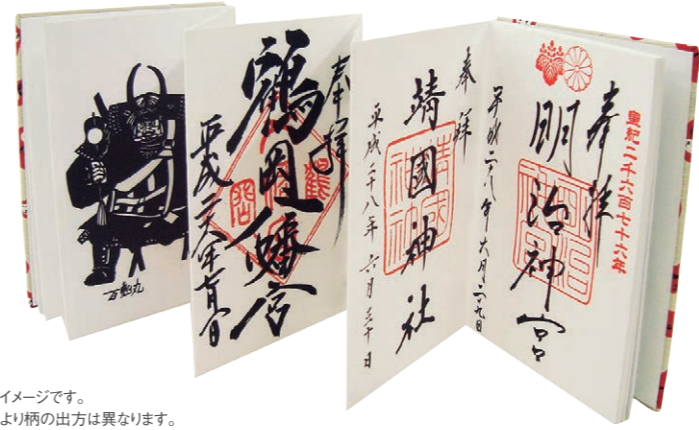 皇紀二千六百七十六年
奉拝
明治神宮
平成二八年六月二九日
奉拝
靖國神社
平成二十八年六月三十日
奉拝
鶴岡八幡宮
イメージです。
より柄の出方は異なります。